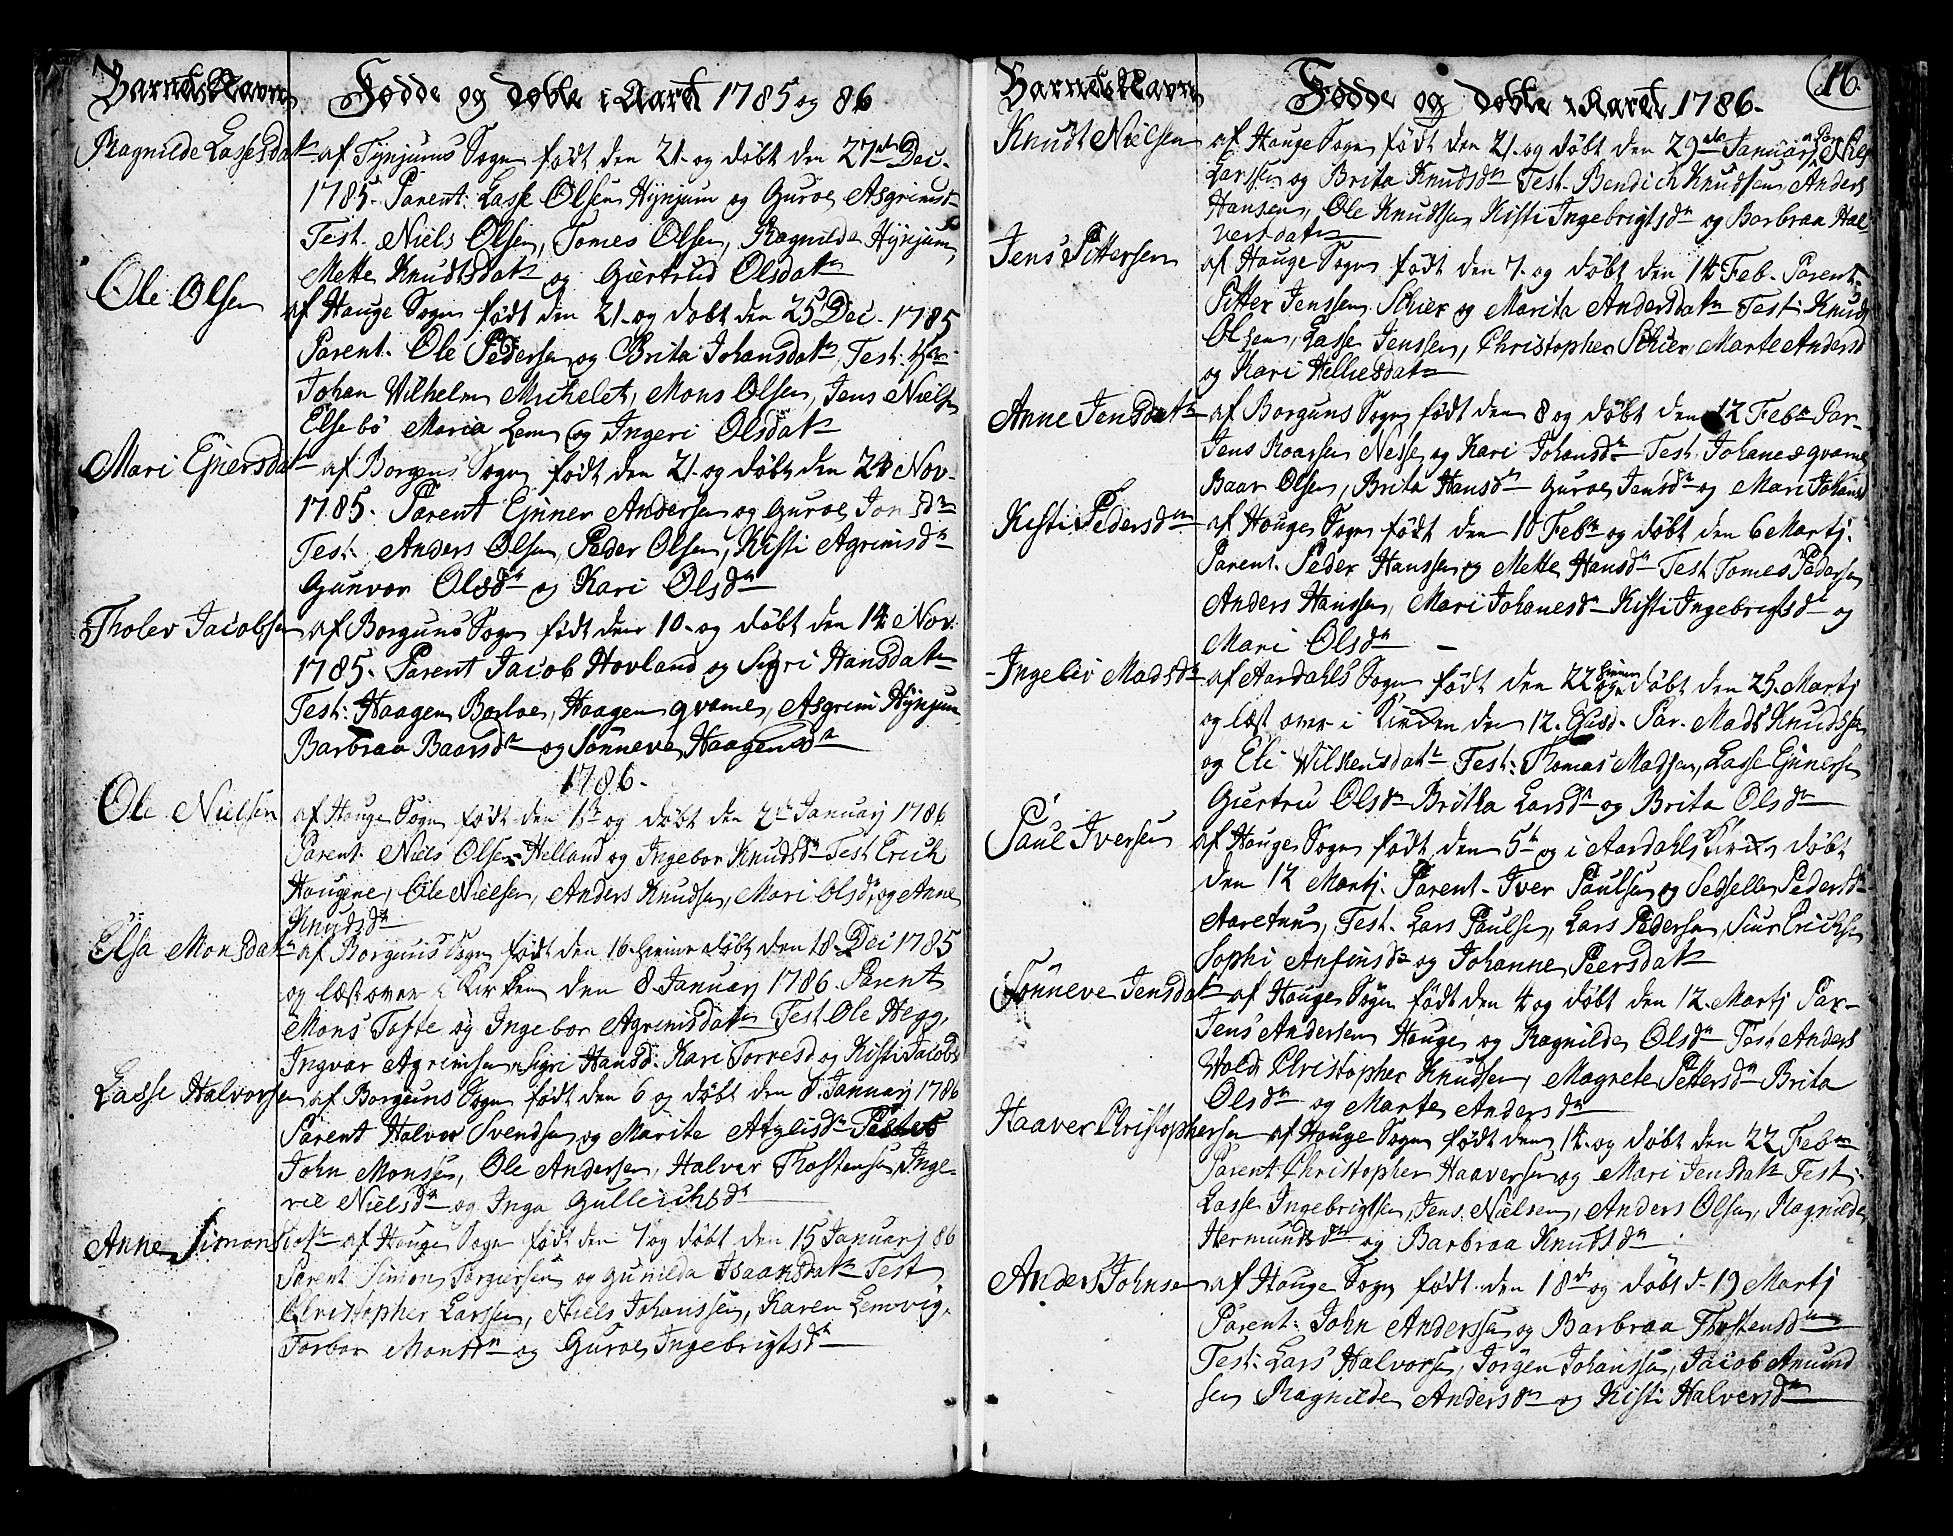 Barnets Navn
Fødde og døbte i Aaret 1785 og 86
Ragnilde Lassesdatr af Tynjums Sogn født den 21. og døbt den 27de Dec.
1785. Parent: Lasse Olsen Hynjum og Guroe Asgrimsdr
Test. Niels Olsen, Tomes Olsen, Ragnilde Hynjum,
Mette Knudtsdatr og Giertrud Olsdatr
Ole Olsen af Hauge Sogn født den 21. og døbt den 25 Dec. 1785
Parent. Ole Pedersen og Brita Johansdatr, Test:
Johan Wilhelm Michelet, Mons Olsen, Jens Nielsen
Elsebø Maria Lem og Ingeri Olsdatr
Mari Ejnersdatr af Borgens Sogn født den 21. og døbt den 24 Nov.
1785. Parent Ejnner Andersen og Guroe Jonsdr
Test. Anders Olsen, Peder Olsen, Kisti Agrimsdr
Gunvor Olsdr og Kari Olsdr
Tholev Jacobsen af Borguns Sogn født den 10. og døbt den 14 Nov.
1785. Parent Jacob Hovland og Sigri Hansdatr
Test: Haagen Borloe, Haagen qvame, Asgrim Hynjum,
Barbraa Baarsdr og Sønneve Haagensdr
1786.
Ole Nielsen af Hauge Sogn født den 1te og døbt den 2de Januarj 1786
Parent. Niels Olsen Helland og Ingebor Knudsdr Test Erich
Haugene, Ole Nielsen, Anders Knudsen, Mari Olsdr og Anne
Knudsdr
Elsa Monsdatr af Borguns Sogn født den 16. hiemedøbt den 18. Dec 1785
og læst over i Kirken den 8. Januarj 1786. Parent
Mons Tofte og Ingebor Agrimsdatr Test Ole Hegg,
Ingvar Agrimsen, Sigri Hansd. Kari Torresd og Kisti Jacobs
Lasse Halvorsen af Borguns Sogn født den 6 og døbt den 8. Januarj 1786
Parent Halvor Svendsen og Marite Atglisdr Testes
John Monsen, Ole Andersen, Halvor Thostensen, Inge-
rie Nielsdr og Inga Gullichsdr
Anne Simonsdatr af Hauge Sogn født den 7 og døbt den 15 Januarj 86
Parent Simon Torgiersen og Gunilda Isaansdatr Test
Christopher Larssen, Niels Johanssen, Karen Lemvig,
Torbor Monsdr og Guroe Ingebrigtsdr
Barnets Navn
Fødde og døbte i Aaret 1786.
16.
Knudt Nielsen af Hauge Sogn født den 21. og døbt den 29de Januarj Par. Niels
Larssen og Brita Knudsdr Test. Bendich Knudsen Anders
Hansen, Ole Knudsen Kisti Ingebrigtsdr og Barbraa Hal-
versdatr
Jens Pittersen af Hauge Sogn født den 7. og døbt den 14 Feb. Parent.
Pitter Jenssen Schier og Marita Andersdatr Test: Knud
Olsen, Lasse Jenssen, Christopher Schier, Marte Andersd
og Kari Helliesdatr
Anne Jensdatr af Borguns Sogn født den 8 og døbt den 12 Febr Par-
Jens Roarsen Nesse og Kari Johansdr Test Johanes qvame
Baar Olsen, Brita Hansdr Guroe Jensdr og Mari Johansd
Kisti Pedersdr af Hauge Sogn født den 10 Febr og døbt den 6 Martj.
Parent. Peder Hanssen og Mette Hansdr Test Tomes Pedersen
Anders Hanssen, Mari Johanesdr Kisti Ingebrigtsdr og
Mari Olsdr
Ingelev Madsdr af Aardahls Sogn født den 22 døbt den 25. Martj
og læst over i Kirken den 12. Par. Mads Knudssen
og Eli Wilkensdatr Test: Thomas Madsen, Lasse Ejnersen
Giertru Olsdr Britha Larsdr og Brita Olsdr
Paul Iversen af Hauge Sogn født den 5te og i Aardahls Kirke døbt
den 12 Martj. Parent. Iver Paulsen og Sedselle Pedersdr
Aaretun, Test. Lars Paulsen, Lars Pedersen, Siur Erichsen
Sophi Anfinsdr og Johanne Peersdatr
Sønneve Jensdatr af Hauge Sogn født den 4 og døbt den 12. Martj Par-
Jens Andersen Hauge og Ragnilde Olsdr Test Anders
Wold, Christopher Knudsen, Magrete Pettersdr Brita
Olsdr og Marte Andersdr
Haaver Christophersen af Hauge Sogn født den 14. og døbt den 22 Febr
Parent Christopher Haaversen og Mari Jensdatr Test:
Lasse Ingebrigtsen, Jens Nielsen, Anders Olsen, Ragnilde
Hermundsdr og Barbraa Knudsdr
Anders Johnsen af Hauge Sogn født den 18de og døbt d. 19 Martj
Parent: John Anderssen og Barbraa Thostensdr
Test: Lars Halvorsen, Jørgen Johanssen, Jacob Amund
sen Ragnilde Andersdr og Kisti Halversdr